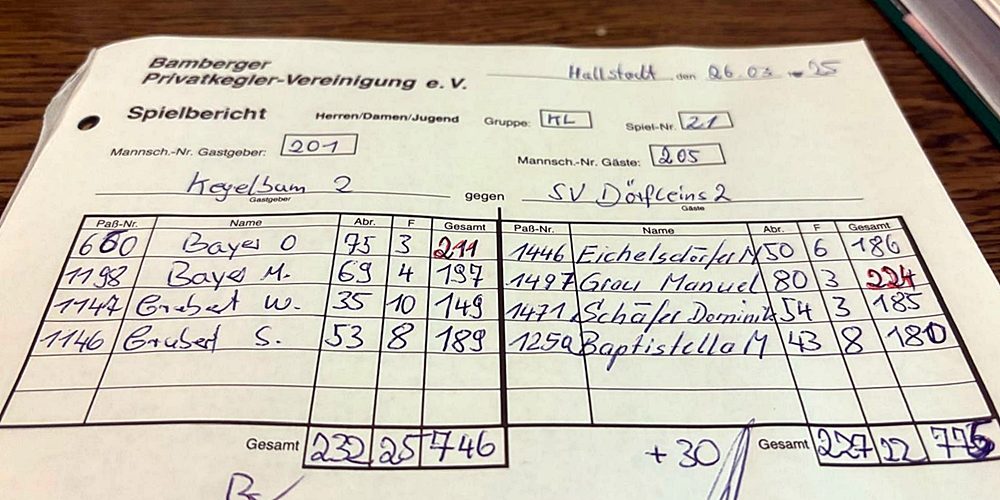 Bamberger
Privatkegler-Vereinigung e. V.
Hallstadt den 26.03 25
Spielbericht Herren/Damen/Jugend Gruppe: KL Spiel-Nr. 21
Mannsch.-Nr. Gastgeber: 201 Mannsch.-Nr. Gäste: 205
Kegelbum 2 gegen SV Dörfleins 2
Gastgeber Gäste
Paß-Nr. Name Abr. F Gesamt Paß-Nr. Name Abr. F Gesamt
660 Bayer O 75 3 211 1446 Eichelsdörfer M 50 6 186
1198 Bayer M. 69 4 197 1497 Grau Manuel 80 3 224
1147 Grubert W. 35 10 149 1471 Schäfer Dominik 54 3 185
1146 Grubert S. 53 8 189 Baptistella M 43 8 180
Gesamt 232 25 746 +30 Gesamt 227 22 775